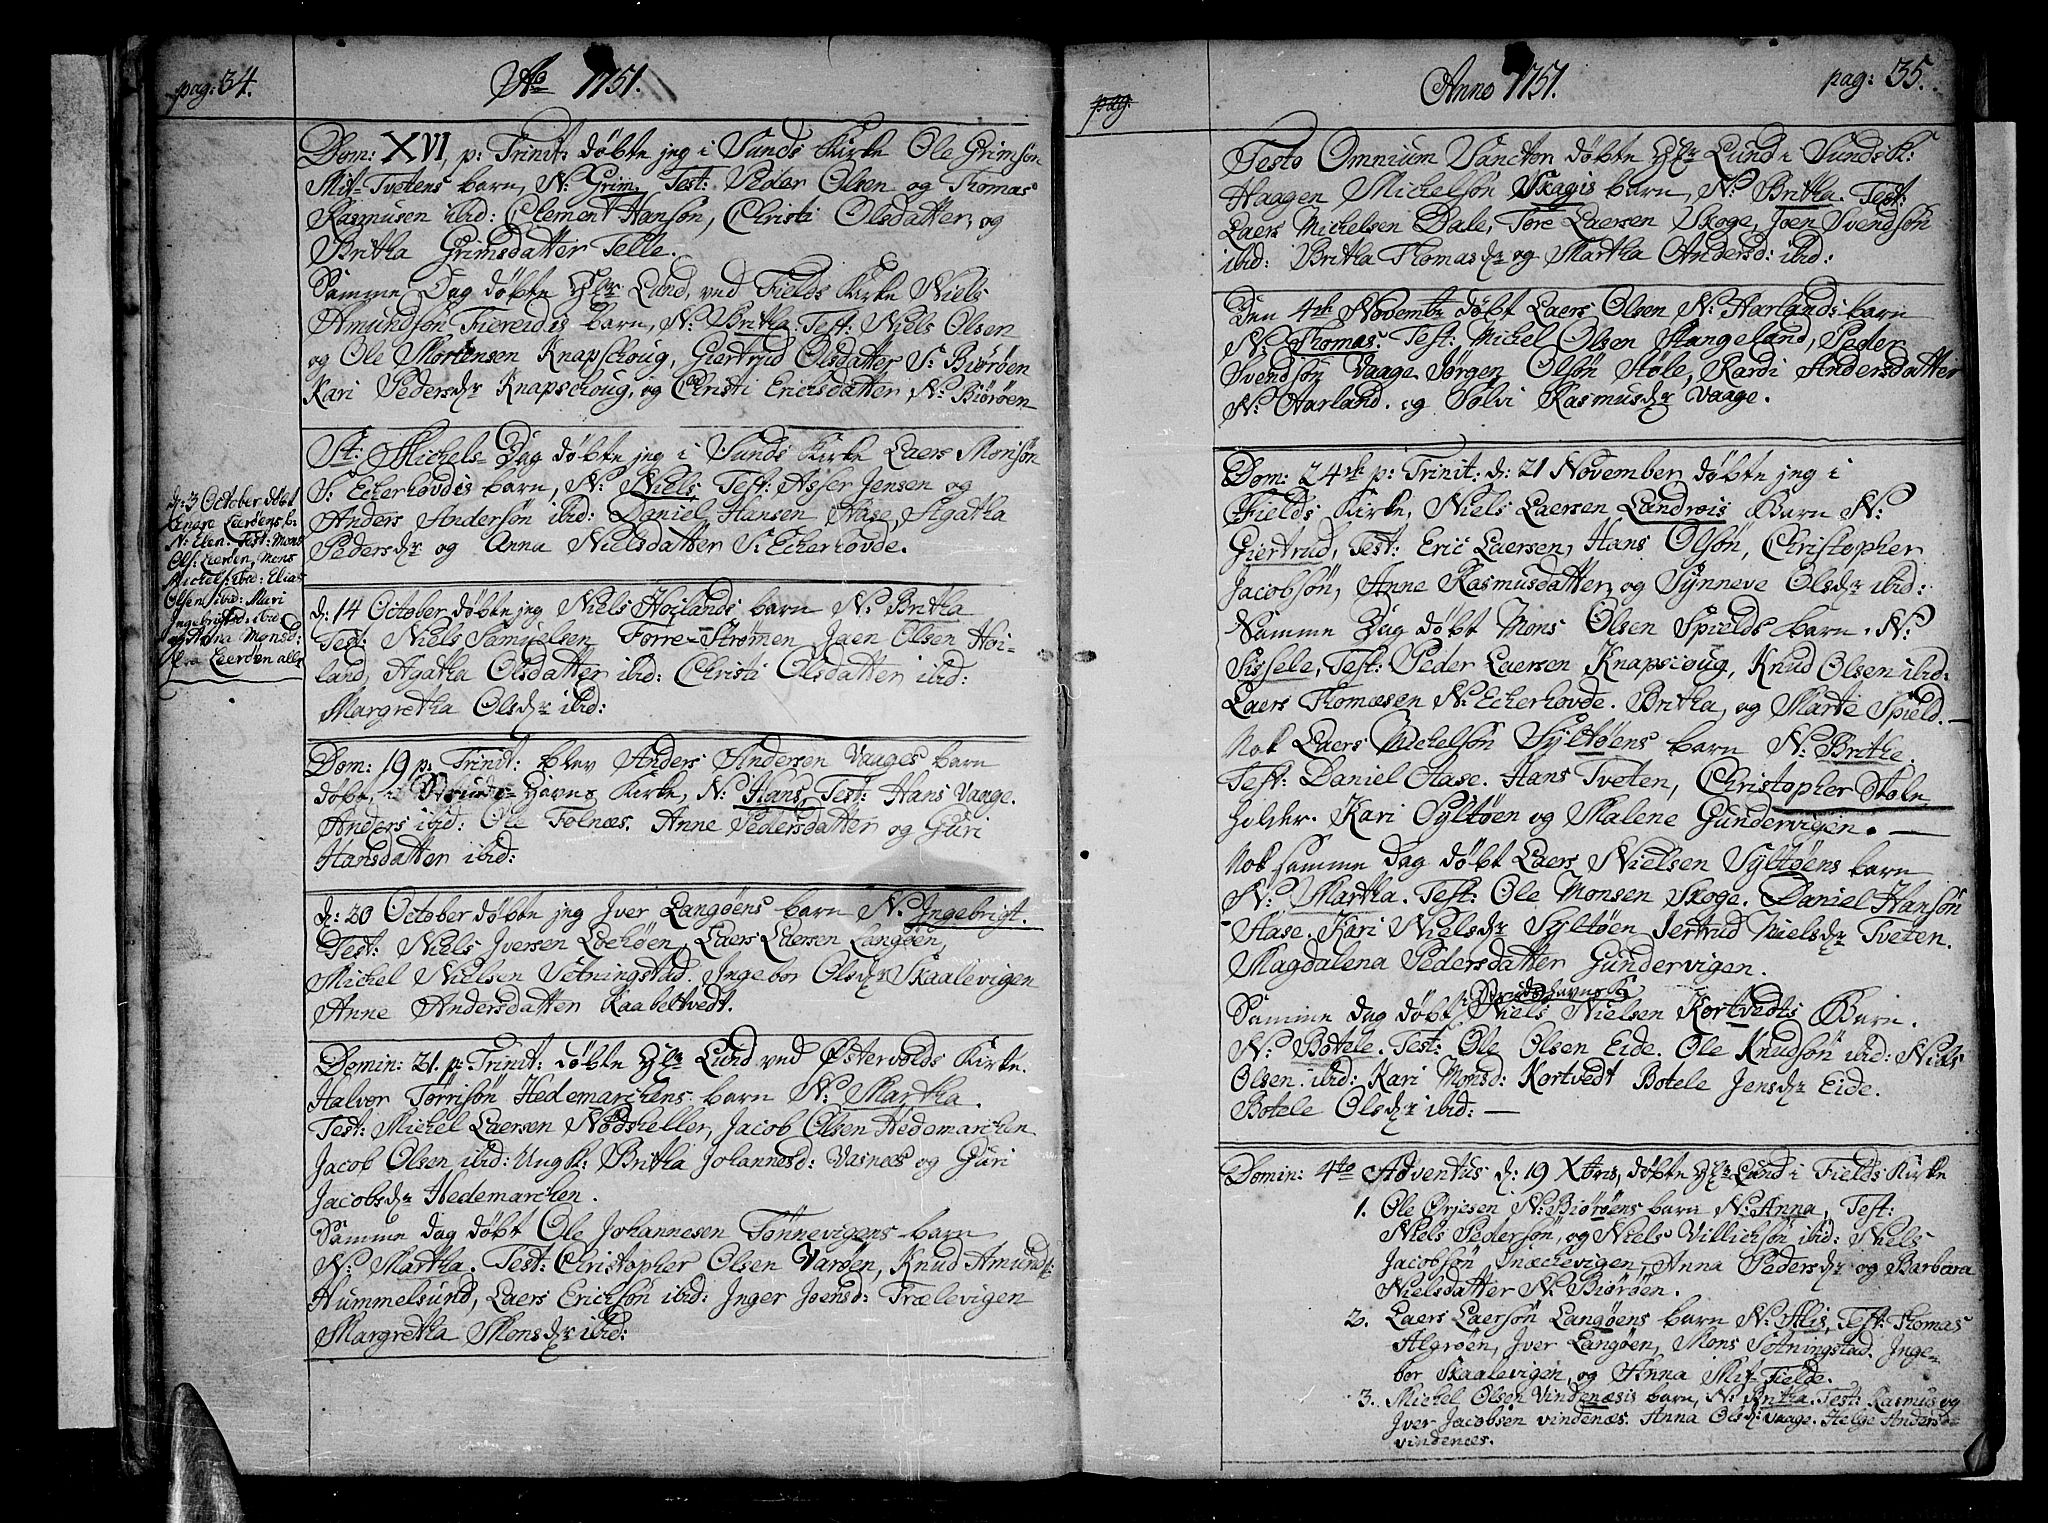 pag: 34.
Ao 1751.
Dom: XVI, p: Trinit: døbte jeg i Sunds Kirke Ole Grimsøn
Mit-Tvetens barn, N: Grim. Test: Peder Olsen og Thomas
Rasmusen ibid: Clement Hansøn, Christi Olsdatter, og
Britha Grimsdatter Telle.
Samme Dag døbte Hr Lund, ved Fields Kirke Niels
Amundsøn Fiereidis barn, N: Britha Test: Niels Olsen
og Ole Mortensen Knapschoug, Giertrud Olsdatter S: Biørøen
Kari Pedersdr Knapschoug, og Christi Ericsdatter N: Biørøen
St: Michels-Dag døbte jeg i Sunds Kirke Laers Monsøn
S: Eckerhovdis barn, N: Niels Test: Asser Jensen og
Anders Andersøn ibid: Daniel Hansen Aase, Agatha
Pedersdr og Anna Nielsdatter S: Eckerhovde.
d: 3 October døbt
Leerøens b:
N: Elen. Test: Mons
Ols: Leerøen, Mons
Michels: ibid: Elias
Olsen ibid: Mari
Ingebrigtsd: ibid
og Anna Monsd:
fra Leerøen alle
d: 14 October døbte jeg Niels Høilands barn N: Britha
Test: Niels Samuelsen Forre-Strømen Joen Olsen Høi-
land, Agatha Olsdatter ibid: Christi Olsdatter ibid:
Margretha Olsdr ibid:
Dom: 19 p: Trinit: blev Anders Andersen Vaages barn
døbt, i Strudshavns Kirke, N: Hans, Test: Hans Vaage.
Anders ibid: Ole Folnæs. Anne Pedersdatter og Guri
Hansdatter ibid:
d: 20 October døbte jeg Iver Langøens barn N: Ingebrigt.
Test: Niels Iversen Lochøen, Laers Laersen Langøen,
Michel Nielsen Totningstad. Ingebor Olsdr Skaalevigen
Anne Andersdatter Kaabeltvedt.
Domin: 21. p: Trinit: døbte Hr Lund ved Østervolds Kirke.
Halvor Tørrisøn Hedemarchens barn N: Martha.
Test: Michel Laersen Nødsheller, Jacob Olsen Hedemarchen
Jacob Olsen ibid: Ungk: Britha Johannesd: Vasnees og Guri
Jacobsdr Hedemarchen.
Samme dag døbt Ole Johannesen Tønnevigens barn
N: Martha. Test: Christopher Olsen Varøen, Knud Amunds:
Hummelsund, Laers Ericksøn ibid: Inger Joensd: Trælevigen
Margretha Monsdr ibid:
pag.
Anno 1751.
pag: 35.
Festo Omnium Sanctor døbte Hr Lund i Sunds K:
Haagen Michelsøn Skagis barn, N: Britha. Test:
Laers Michelsen Dale, Tore Laersen Skoge, Joen Svendsøn
ibid: Britha Thomasdr og Martha Andersd: ibid:
Den 4de Novembr døbt Laers Olsen N: Harlands barn
N: Thomas. Test: Michel Olsen Stangeland, Peder
Svendsøn Vaage Jørgen Olsøn Støle, Rardi Andersdatter
N: Harland. og Sølvi Rasmusdr Vaage.
Dom: 24de p: Trinit: d: 21 November døbte jeg i
Fields Kirke, Niels Laersen Landrøis Barn N:
Giertrud, Test: Eric Laersen, Hans Olsøn, Christopher
Jacobsøn, Anne Rasmusdatter, og Synneve Olsdr ibid:
Samme Dag døbt Mons Olsen Spields barn, N:
Sissele, Test: Peder Laersen Knapscoug, Knud Olsen ibid:
Laers Thomæsen N: Eckerhovde. Britha, og Marte Spield.
Nok Laers Michelsøn Syltøens barn N: Brithe.
Test: Daniel Aase. Hans Tveten, Christopher Stole
holder. Kari Syltøen og Malene Gundervigen.
Nok samme dag døbt Laers Nielsen Syltøens barn
N: Martha. Test: Ole Monsen Skoge. Daniel Hansøn
Aase. Kari Nielsdr Syltøen Jertrud Nielsdr Tveten.
Magdalena Pedersdatter Gundervigen.
i Strudshavns K
Samme dag døbt Niels Nielsen Kortvedts Barn.
N: Botele. Test: Ole Olsen Eide. Ole Knudsøn ibid: Niels
Olsen ibid: Kari Monsd: Kortvedt Botele Jensdr Eide.
Botele Olsdr ibid:
Domin: 4to Adventus d: 19 Xbris, døbte Hr Lund i Fields Kirke
1. Ole Ørjesen N: Biørøens barn N: Anna, Test:
Niels Pedersøn, og Niels Villichsøn ibid: Niels
Jacobsøn Snæckevigen, Anna Pedersdr og Barbara
Nielsdatter N: Biørøen.
2. Laers Laersøn Langøens barn N: Alis, Test: Thomas
Algrøen, Iver Langøen, Mons Totningstad. Inge-
bor Skaalevigen, og Anna Mit-Fielde.
3. Michel Olsen Vindenæsis barn, N: Britha. Test: Rasmus og
Iver Jacobsen vindenæs. Anna Olsd: vaage. Helge Andersd:
vindenæs.